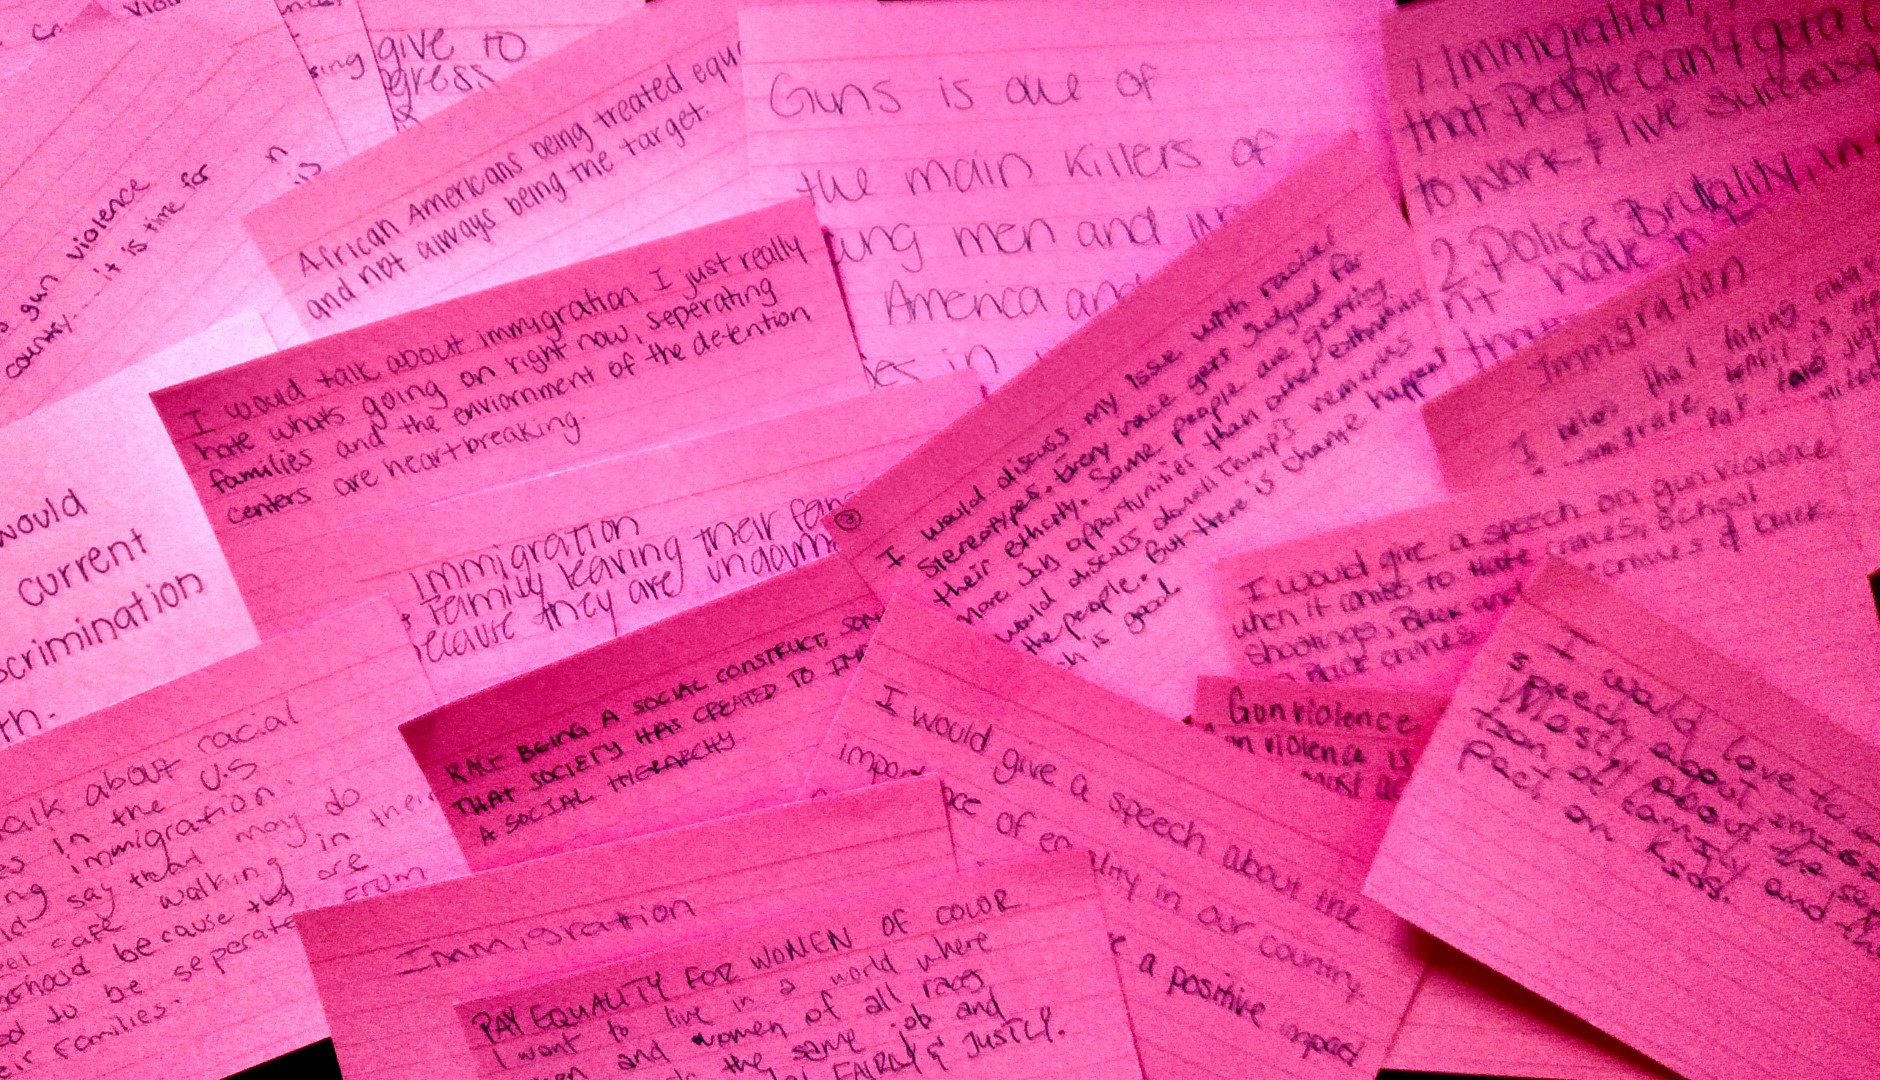 give to
gress
gun violence
country... it is time for
African Americans being treated equ
and not always being the target.
Guns is one of
the main killers of
ung men and
America and
es in
1. Immigration,
that people can't get a
to work & live
2. Police Brutality, in
have
I would talk about immigration I just really
hate whats going on right now, seperating
families and the enviornment of the detention
centers are heartbreaking.
would
current
scrimination
th.
Immigration
Family leaving their fam
ecause they are undocum
I would discuss my issue with racial
stereotypes. Every race gets judged for
their ethicity. Some people are getting
more job opportunities than other
would discuss donall Trump's remarks
the people. But there is change happen
h is good.
Immigration
that
I would give a speech on gun violance
when it comes to hate crimes, school
shootings, Black and
Black crimes
Gun violence
on violence is
most
I would love to
speech about immig
Mostly about the se
tion of family and th
pact on kids.
RACE BEING A SOCIAL CONSTRUCT, SOM
THAT SOCIETY HAS CREATED TO IMP
A SOCIAL HIERARCHY
I would give a speech about the
importance of equality in our country.
a positive impact
alk about racial
es in the U.S
ng immigration.
say that may do
eel safe walking in their
because they are
ed to be seperate from
eir families.
Immigration
PAY EQUALITY FOR WOMEN OF COLOR
I want to live in a world where
men and women of all races
the same job and
FAIRLY & JUSTLY.